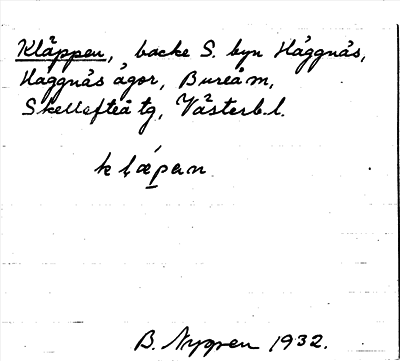 Kläppen, backe S. byn Häggnäs,
Häggnäs ägor, Bureå m,
Skellefteå tg, Västerb.l.
klǽpan
B. Nygren 1932.